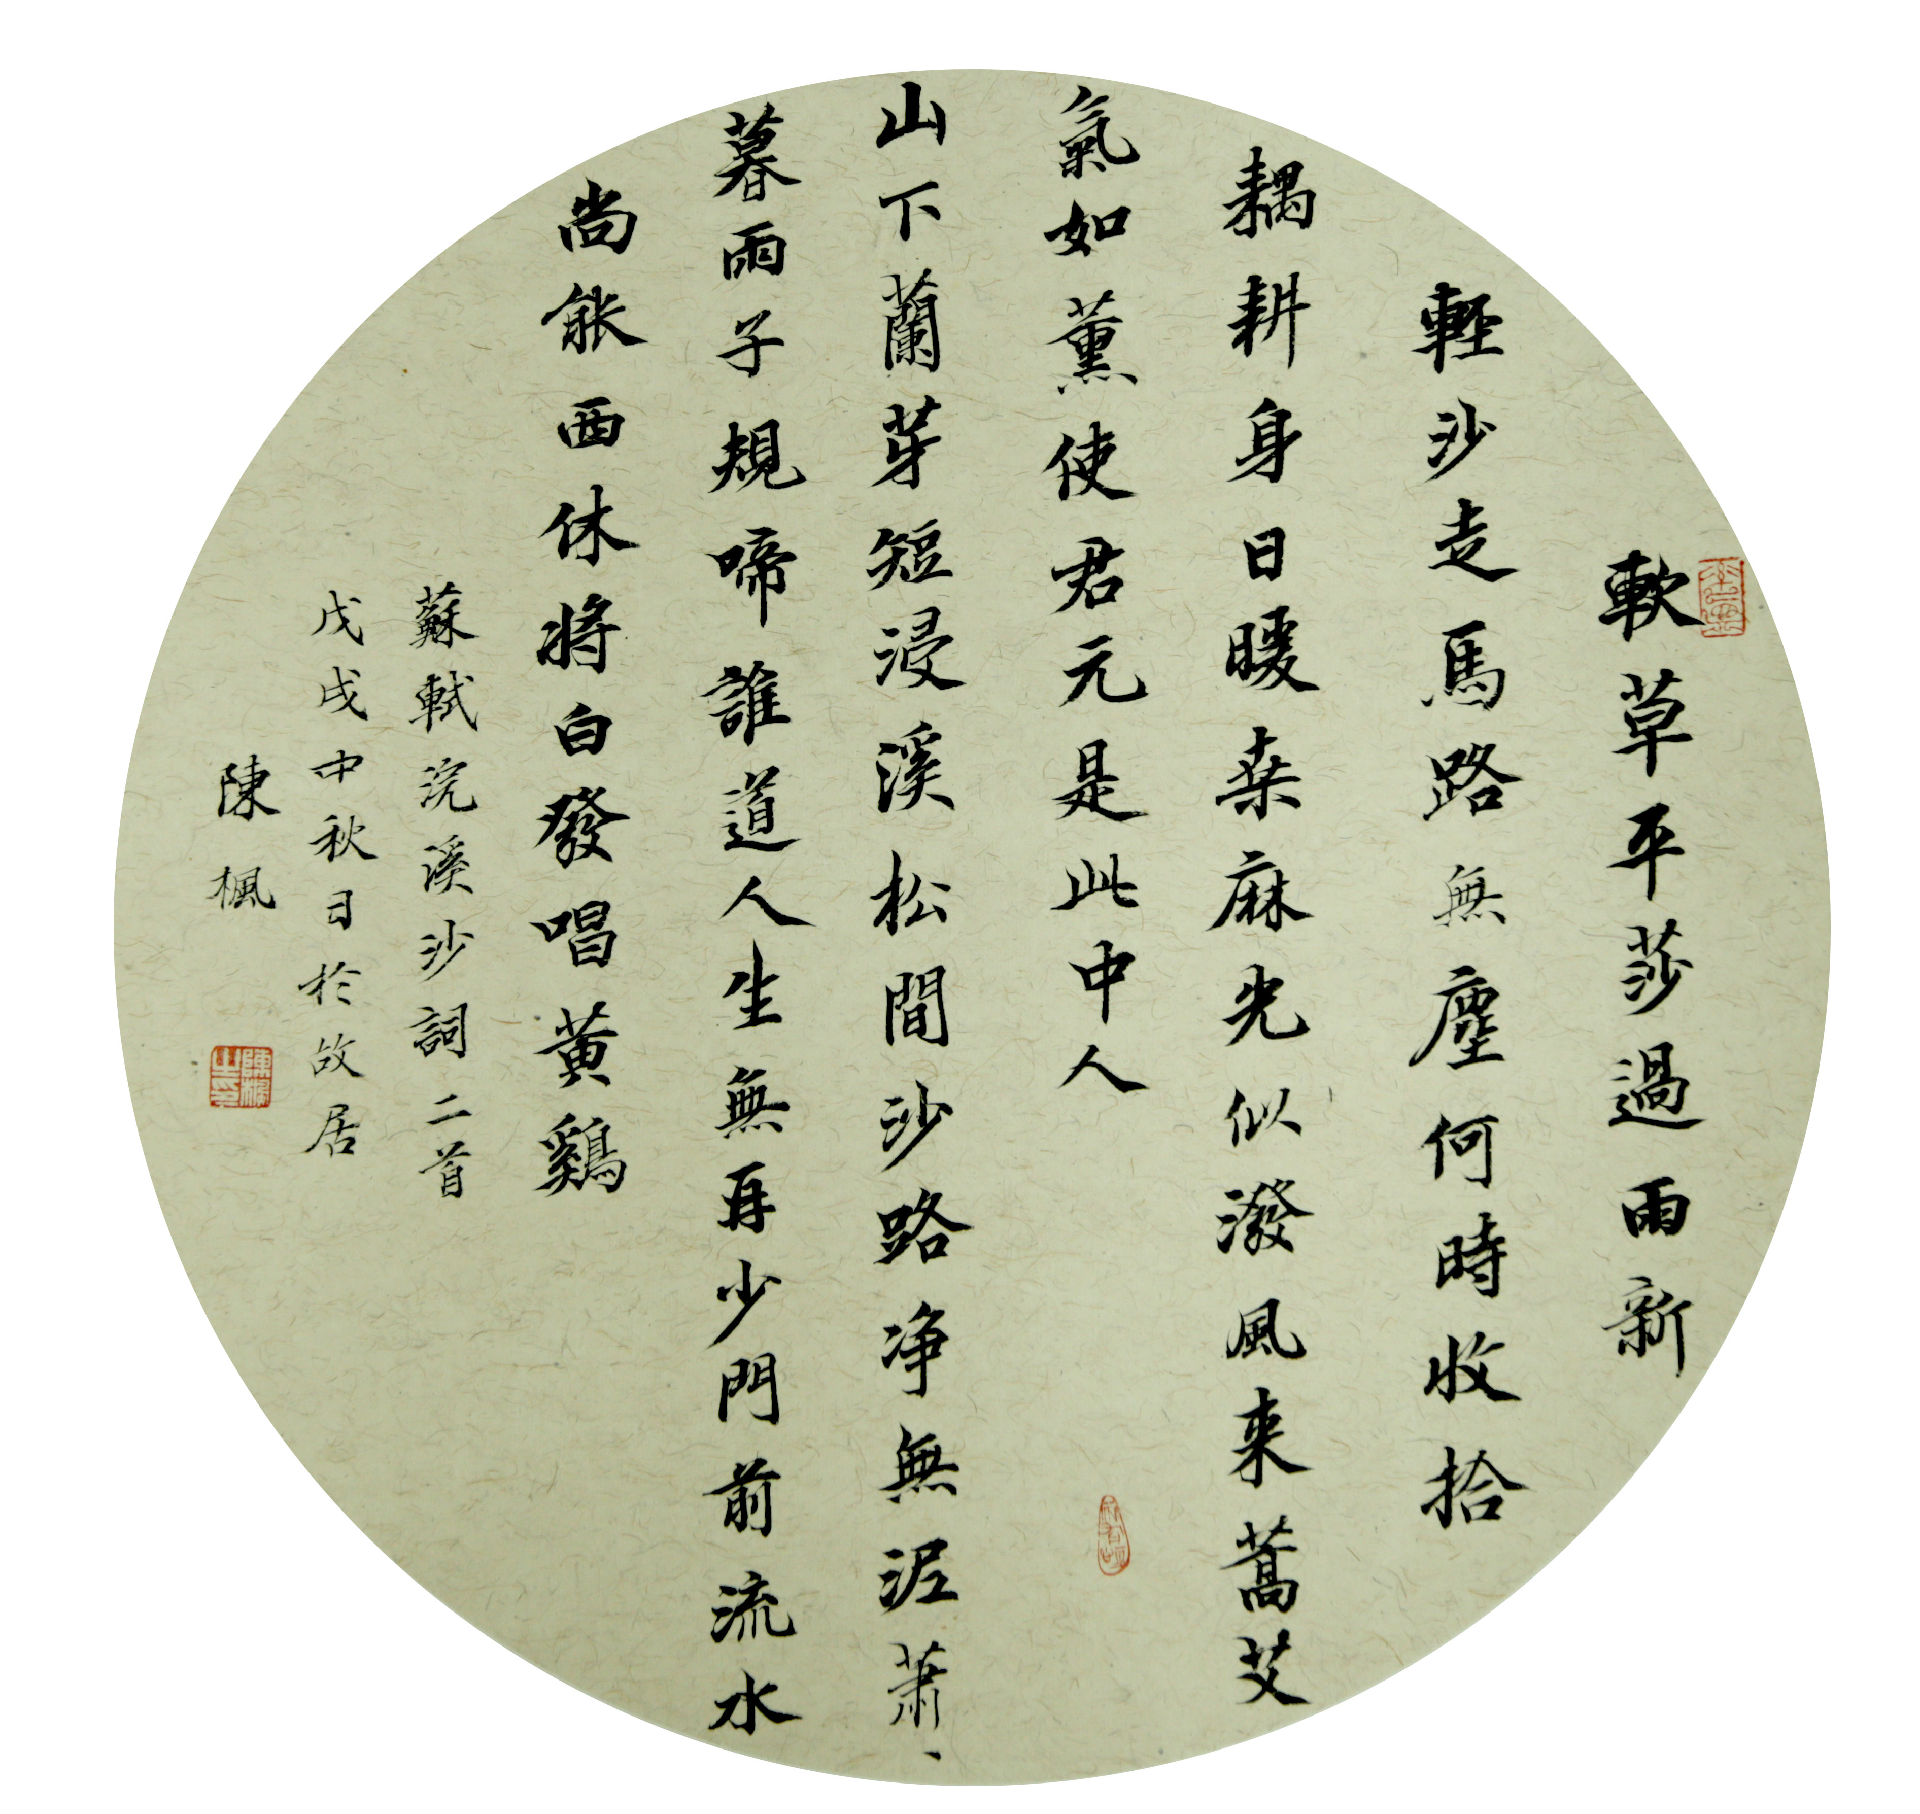 軟草平莎過雨新
輕沙走馬路無塵何時收拾
耦耕身日暖桒麻光似潑風来蒿艾
氣如薰使君元是此中人
山下蘭芽短浸溪松間沙路净無泥蕭、
暮雨子規啼誰道人生無再少門前流水
尚能西休將白發唱黄鷄
蘇軾浣溪沙詞二首
戊戌中秋日於故居
陳楓
陳楓之印